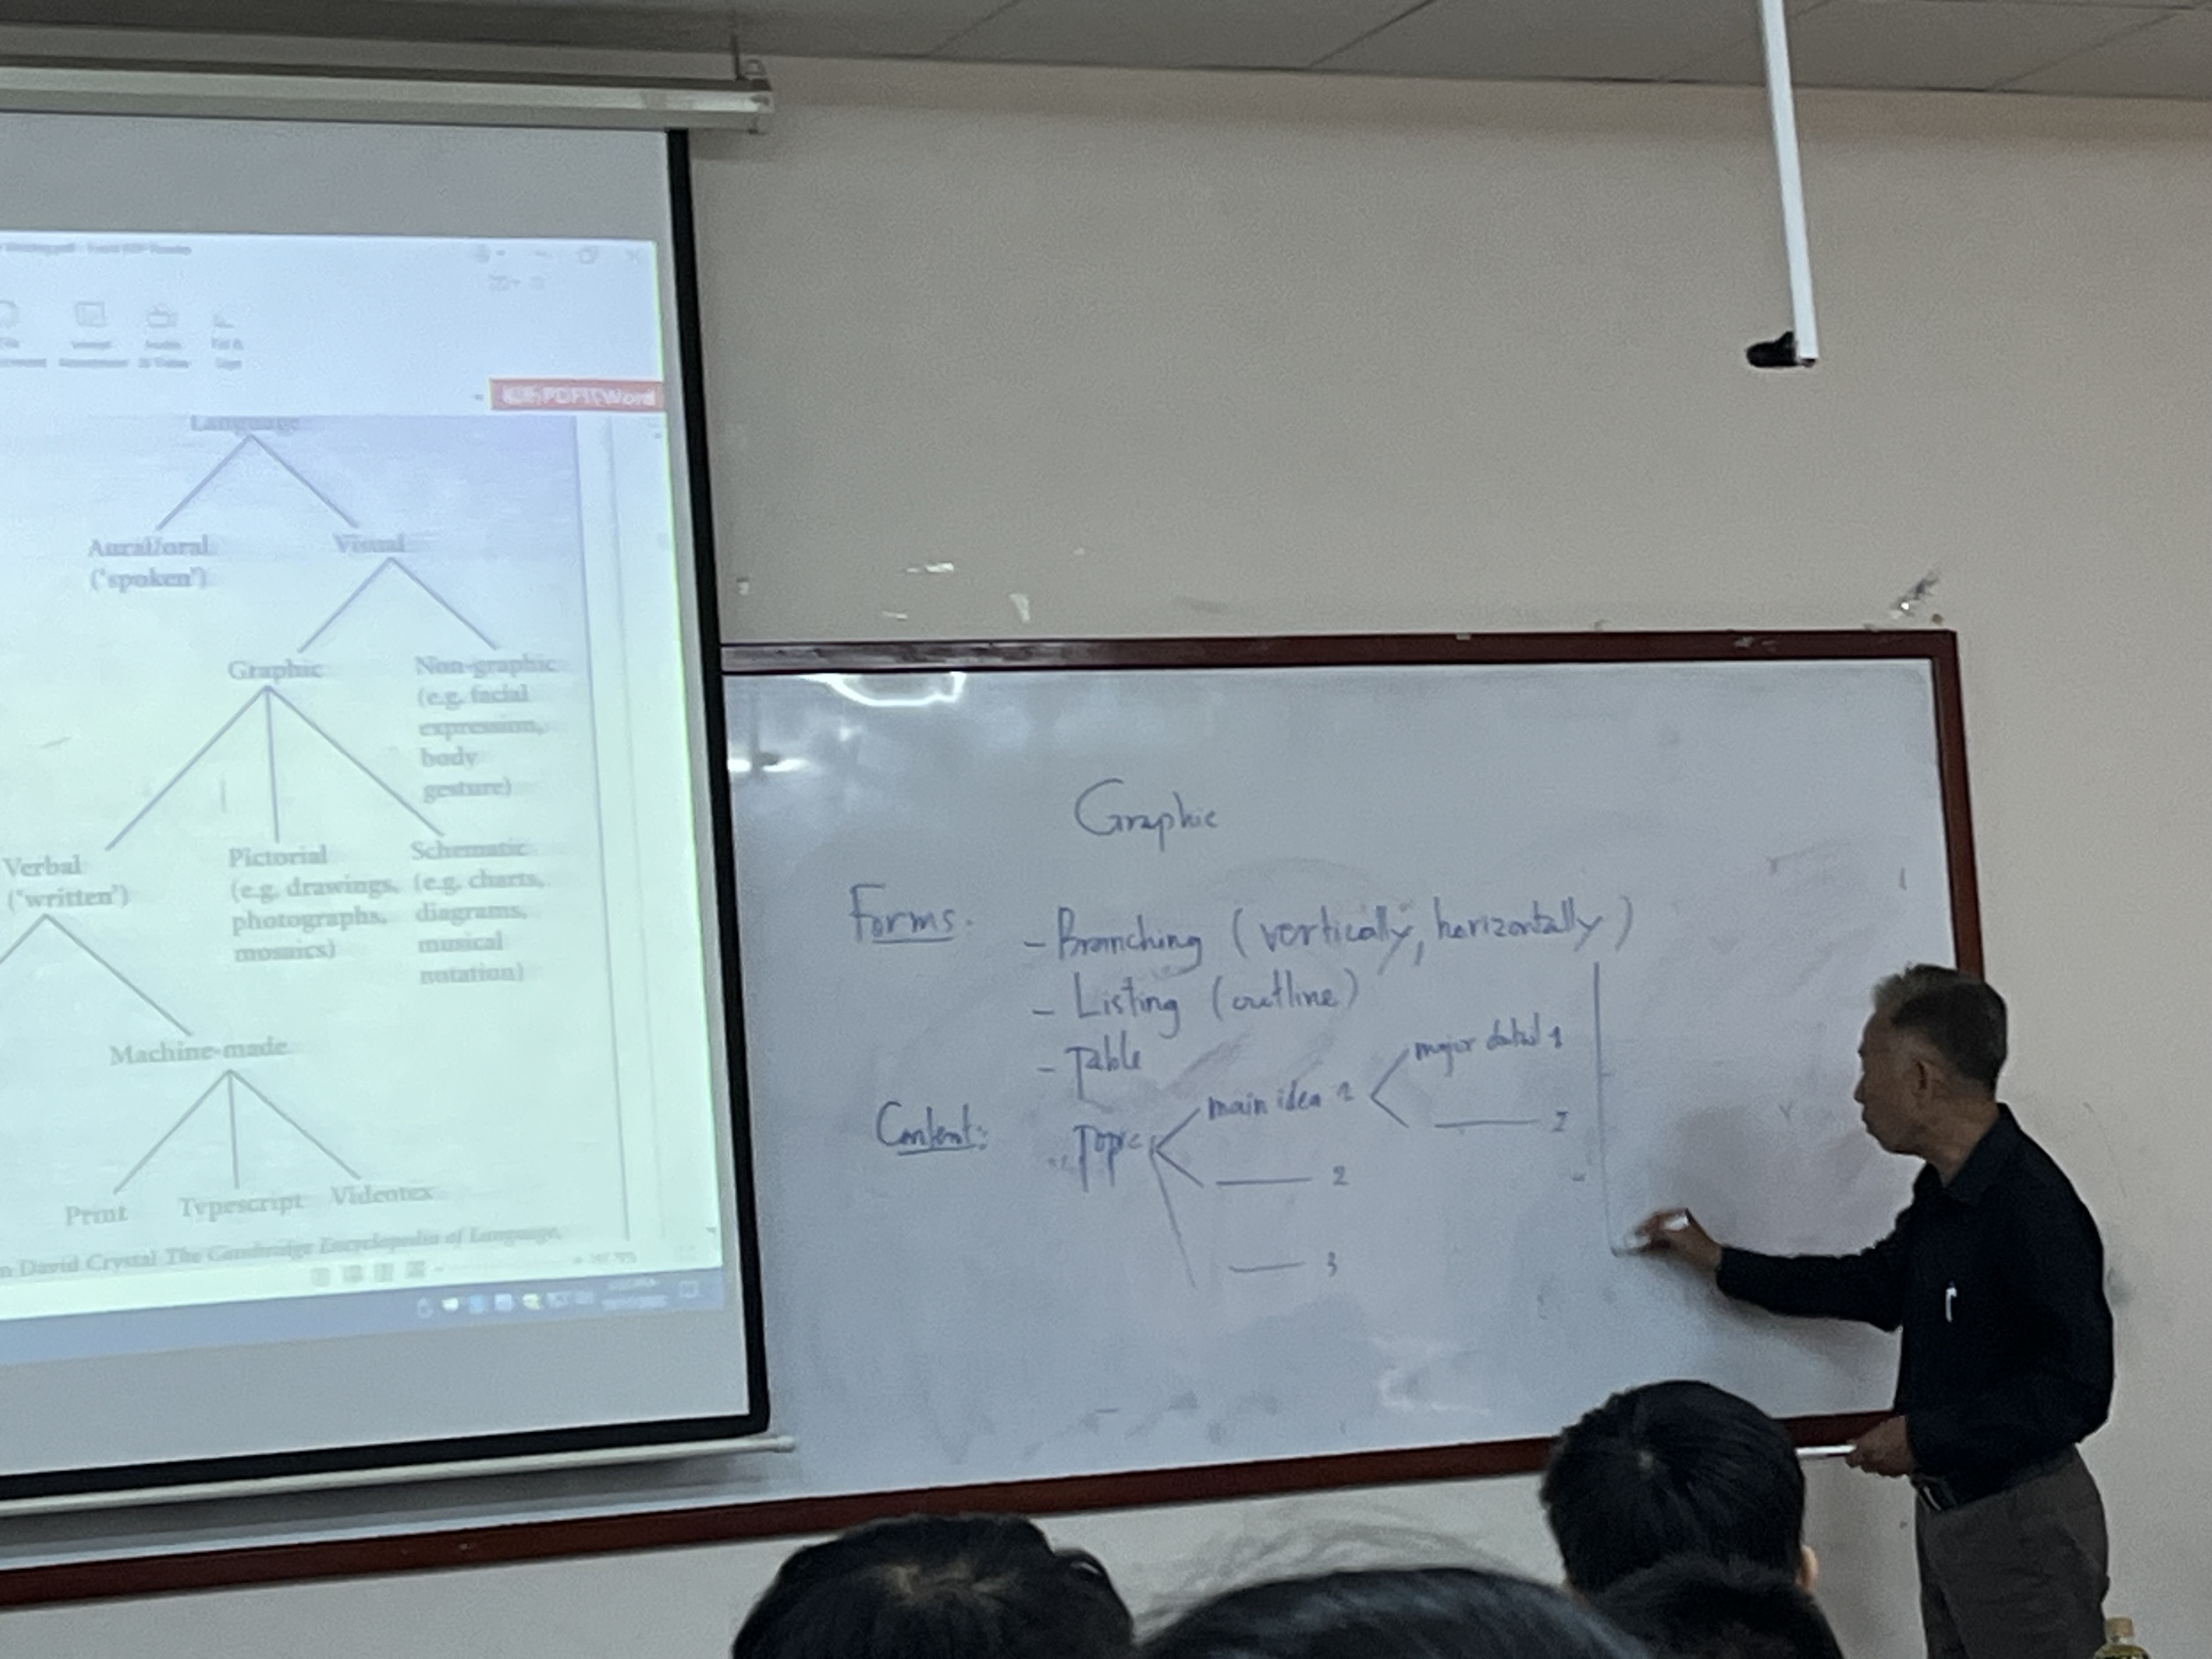 Language
Aural/oral
('spoken')
Visual
Graphic
Non-graphic
(e.g. facial
expression,
body
gesture)
Verbal
('written')
Pictorial
(e.g. drawings,
photographs,
mosaics)
Schematic
(e.g. charts,
diagrams,
musical
notation)
Machine-made
Print
Typescript
Videotex
David Crystal The Cambridge Encyclopedia of Language,
Graphic
Forms:
- Branching (vertically, horizontally)
- Listing (outline)
- Table
Content:
Topic
main idea 1
2
3
major detail 1
2